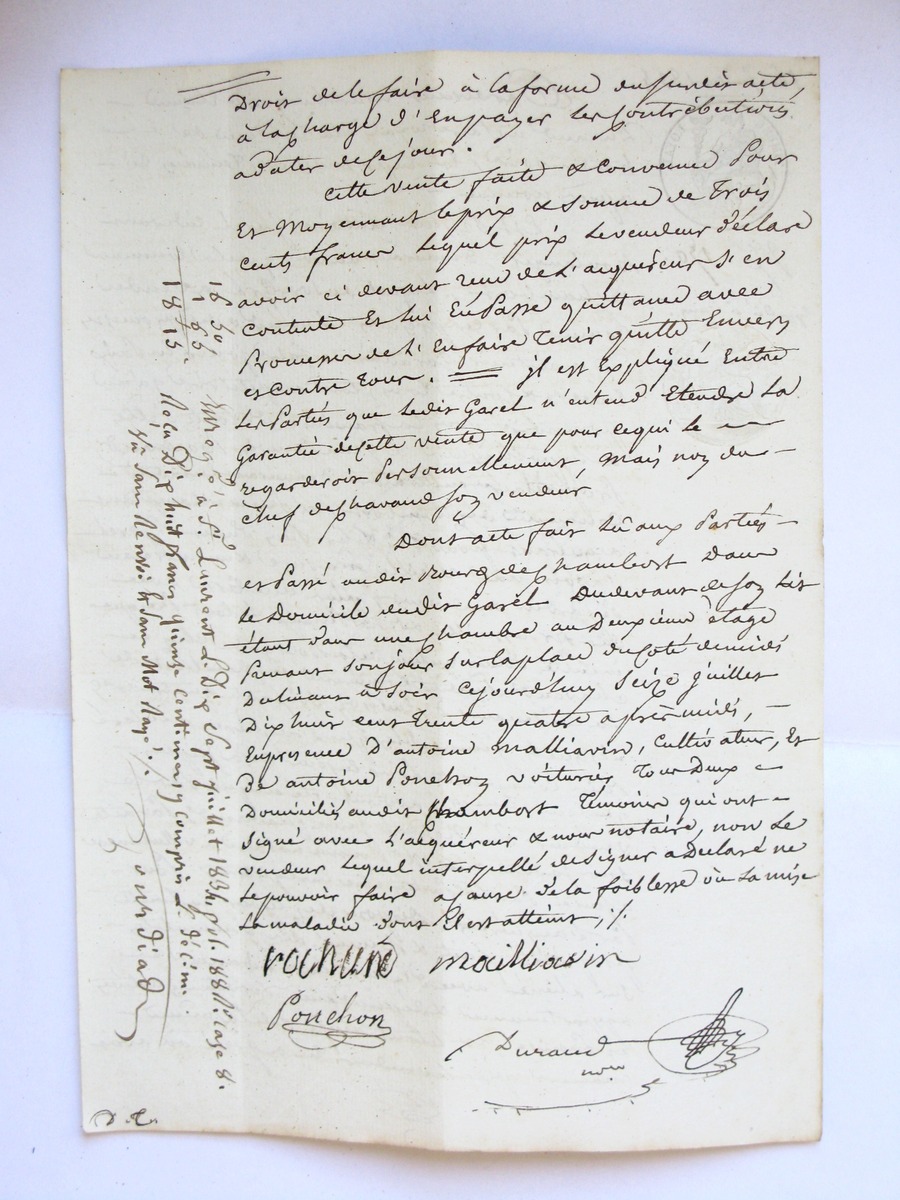 Droit de le faire à la forme du susdit acte,
à la charge d'En payer les Contributions
à dater de ce jour.
Cette vente faite & Convenue Pour
Et Moyennant le prix & Somme de Trois
Cents francs lequel prix le vendeur déclare
avoir ci devant reçu de l'acquéreur S'en
Contente Et lui En Passe quittance avec
Promesse de l'En faire Tenir quitte Envers
et Contre Tous. = jl est Expliqué Entre
les Parties que ledit Garel n'entend Etendre la
Garantie de cette vente que pour ce qui le
regarderoit Personnellement, mais non du
chef de chavand son vendeur
Dont acte fait lû aux Parties
et Passé audit Bourg de chambost Dans
le Domicile dudit Garel Au devant de son lit
étant dans une chambre au Deuxième étage
Prenant son jour sur la place du côté de midi
Du levant à soir Cejourd'huy Seize juillet
Dix huit cent Trente quatre après midi,
En présence D'antoine Malliavin, Cultivateur, Et
De antoine Ponchon voiturier Tous Deux
Domiciliés audit Chambost Témoins qui ont
Signé avec l'acquéreur & nous notaire, non le
vendeur lequel interpellé de signer a Déclaré ne
le pouvoir faire a cause de la foiblesse où la mise
la maladie dont il est atteint, ./.
malliavin
Ponchon
Durand
nore
16 50
1 65
18 15
à St. Laurent le Dix Sept juillet 1834 vol. 188 Case 8.
Reçu Dix huit francs quinze centimes y compris le décime